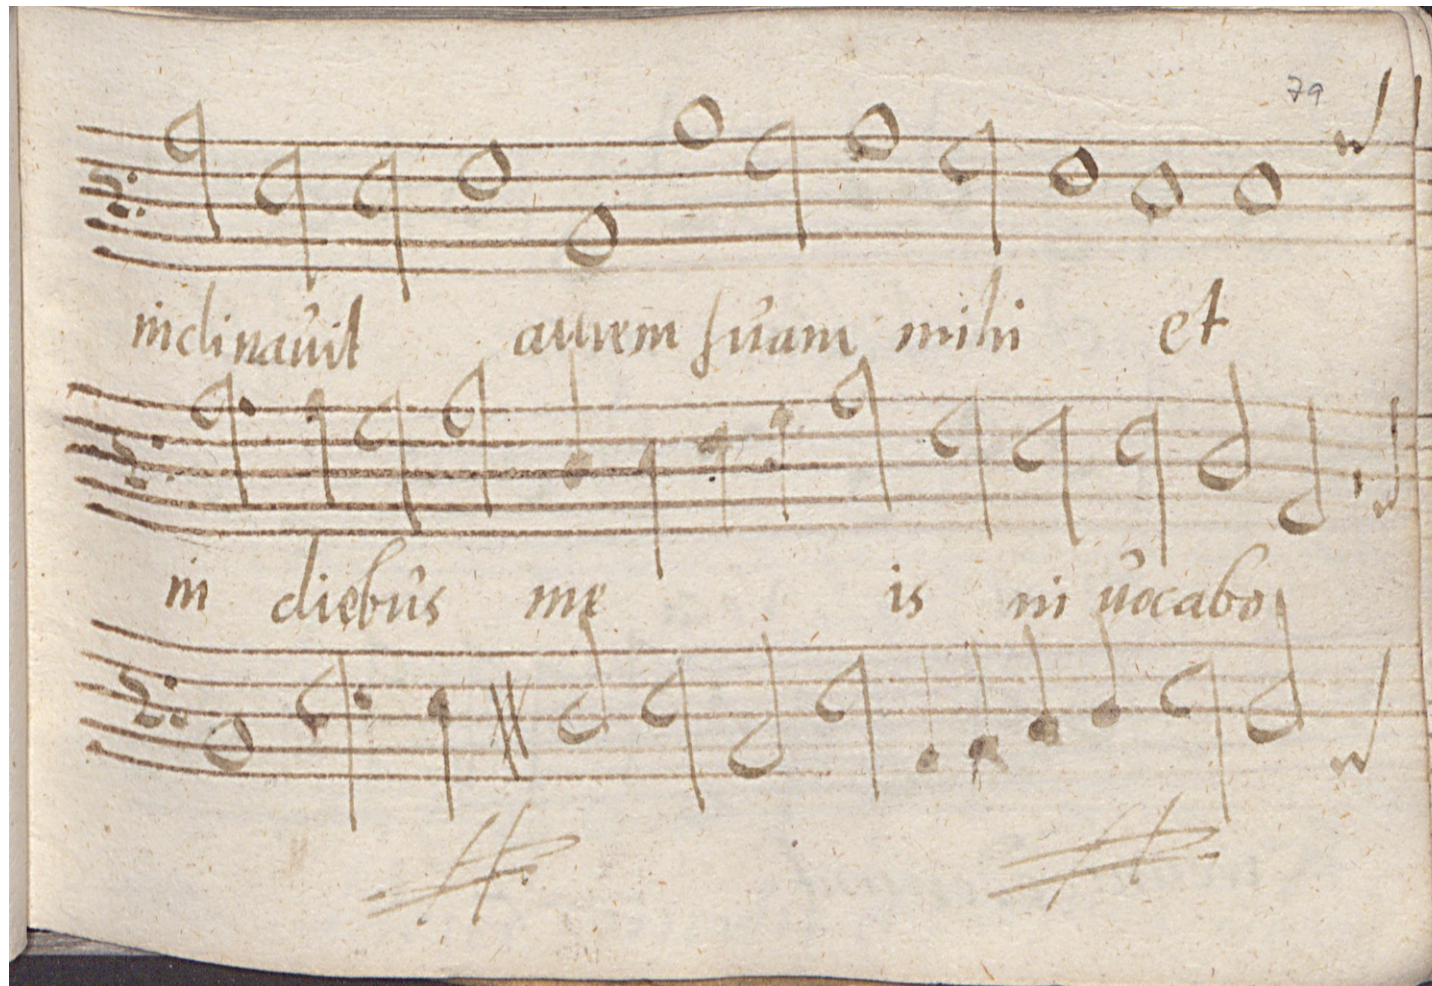 79
inclinavit aurem suam mihi et
in diebus me is in vocabo